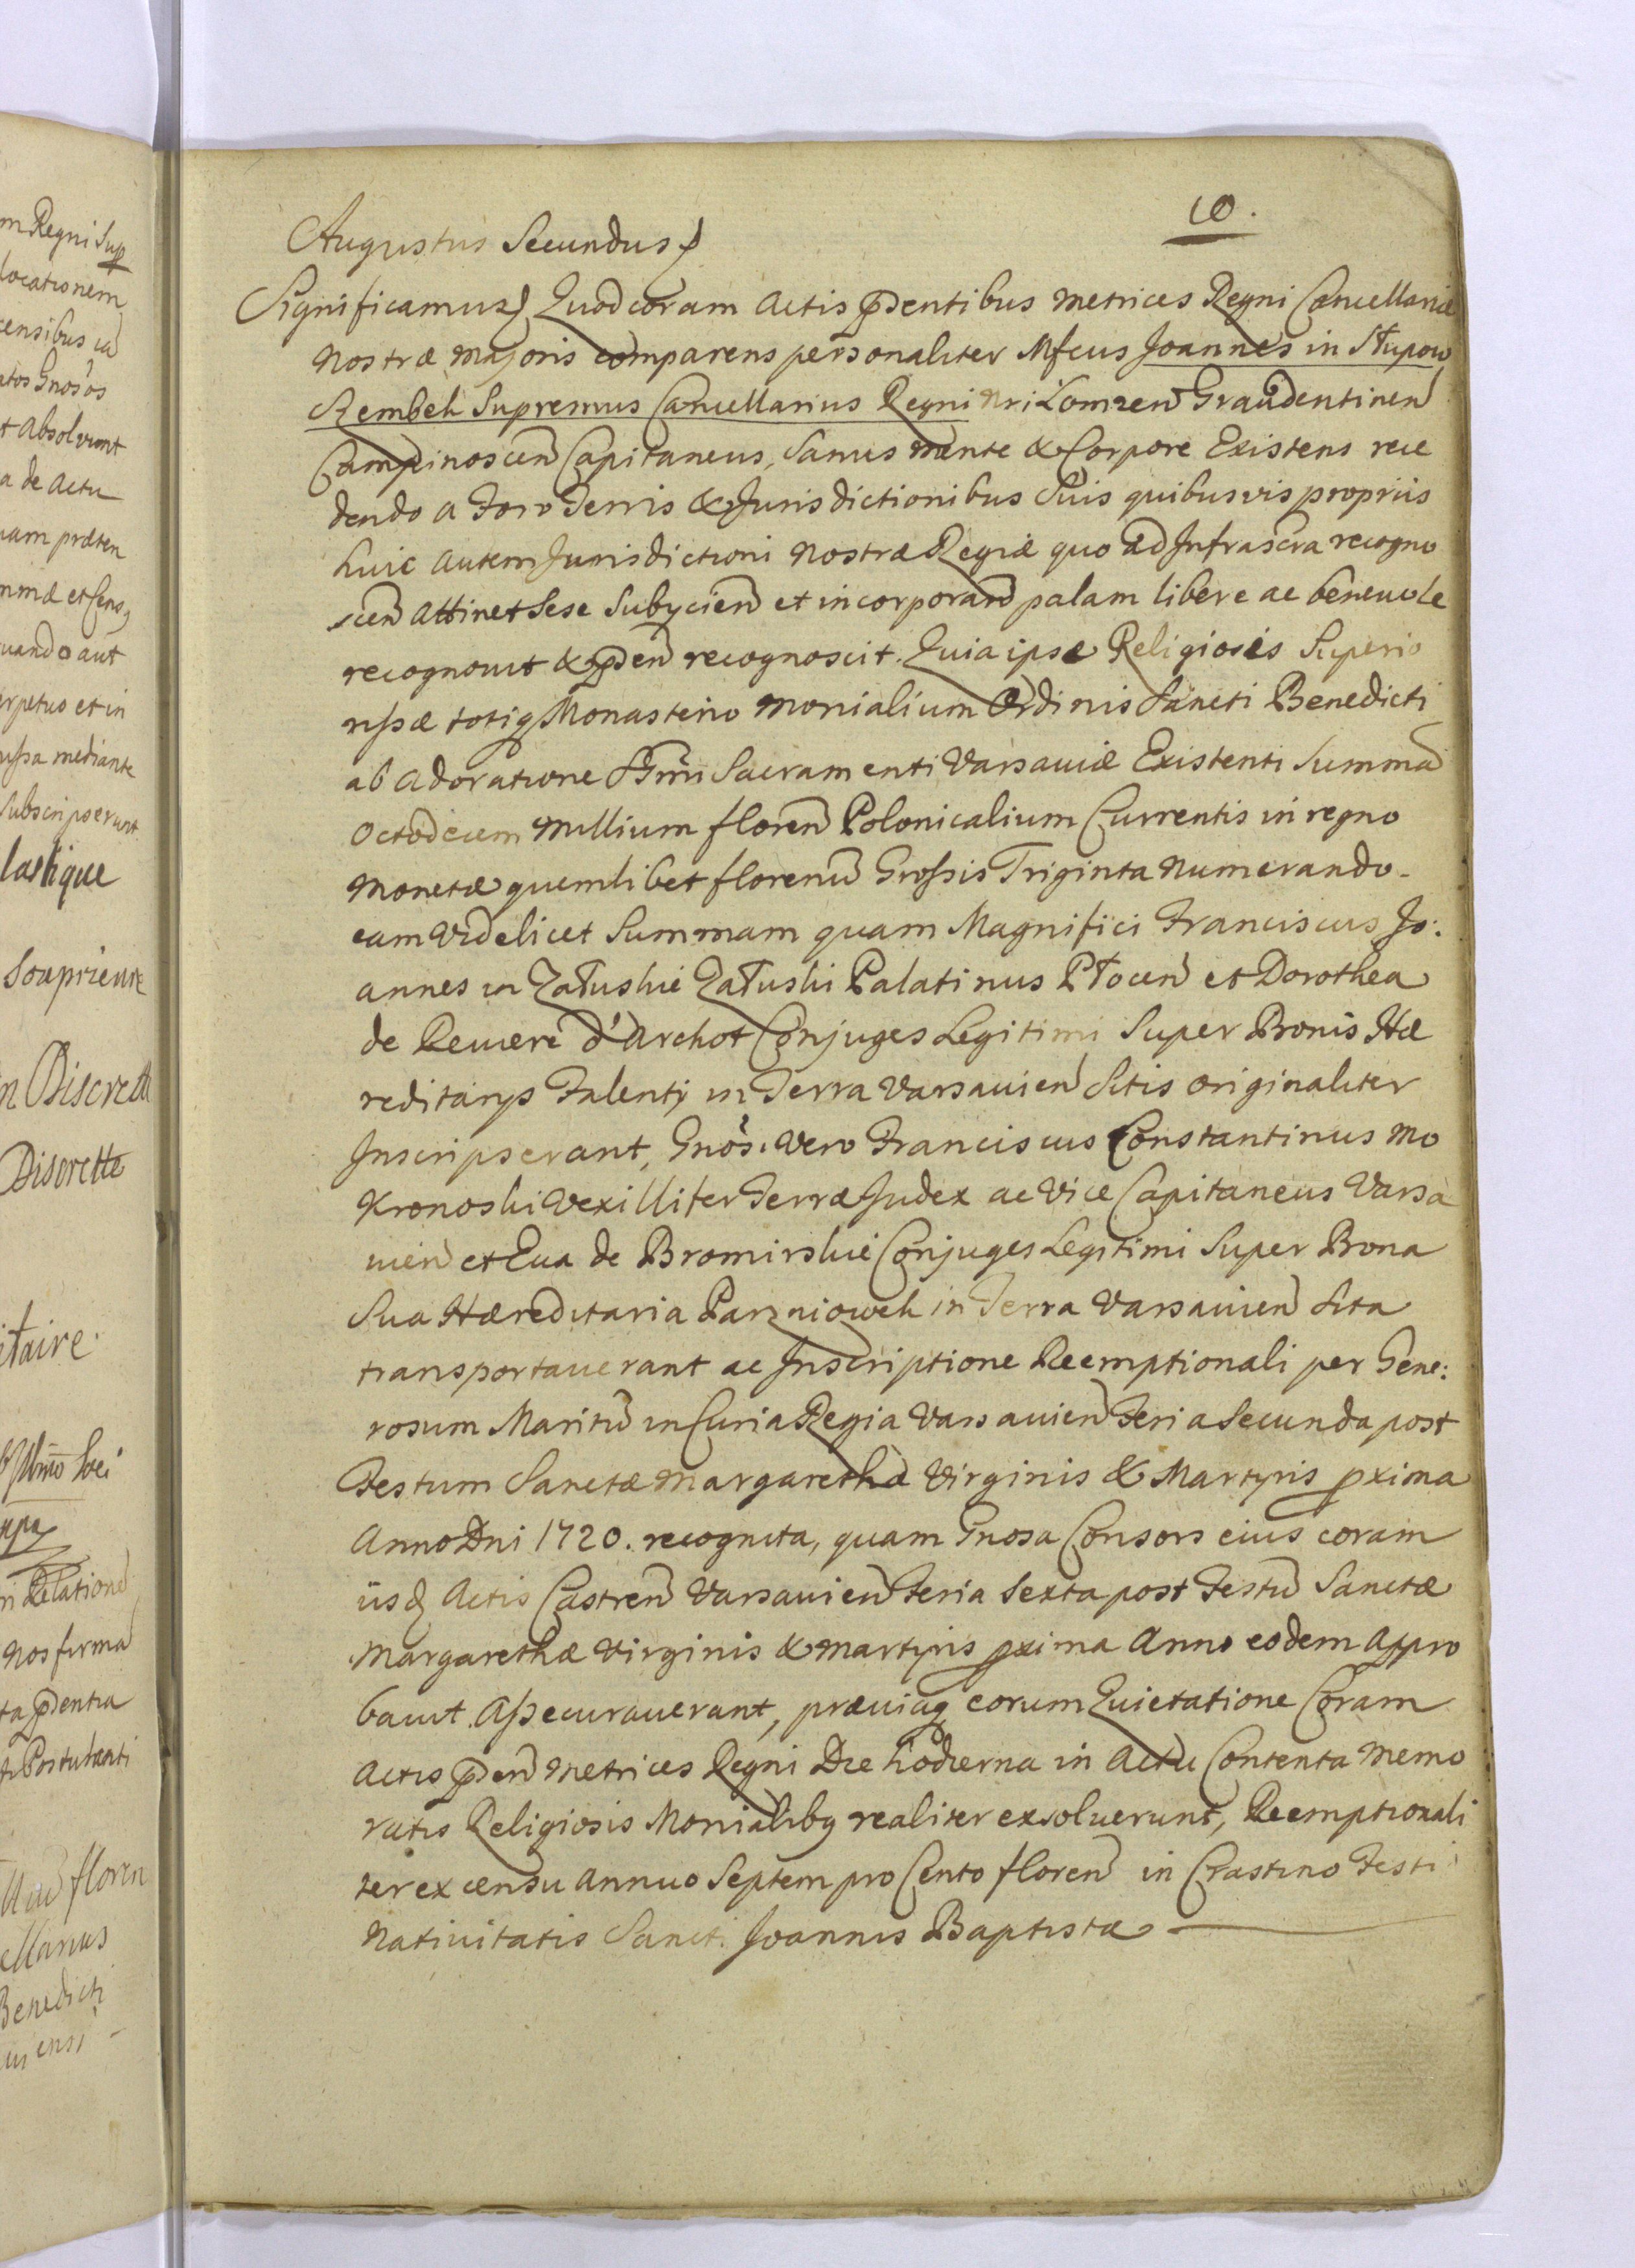 m Regni Sup
locationem
censibus
atos Gnosos
t absolvunt
a de actu
nam præten
mmæ et Cens
quando aut
erpetuo et in
ussa mediante
subscripserunt
lastique
Souprieure
n Discrett
Discrette
itaire.
Ulmo loci
ri Relatione
nos firma
ta pñdentia
Postulanti
floren
ellarius
Benedicti
uiensi
10.
Augustus Secundus
Significamus Quod coram Actis p̃sentibus Metrices Regni Cancellariæ
Nostræ Majoris comparens personaliter Mfcus Joannes in Słupow
Szembek Supremus Cancellarius Regni Nri Łomzen Graudentinen
Campinoscen Capitaneus, Sanus mente & Corpore Existens rece
dendo a Foro Terris & Jurisdictionibus Suis quibusvis propriis
huic autem Jurisdictioni Nostræ Regiæ quo ad Infrascra recogno
scen attinet Sese Subycien et incorporand palam libere ac beneuole
recognouit & p̃sen recognoscit. Quia ipse Religiosis Superio
rissæ totiq Monasterio Monialium Ordinis Sancti Benedicti
ab Adoratione SSmi Sacramenti Varsauiæ Existenti Summã
Octodecem Millium floren Polonicalium Currentis in regno
Monetæ quemlibet florenũ Grossis Triginta Numerando.
eam Videlicet Summam quam Magnifici Franciscus Jo:
annes in Załuskie Załuski Palatinus Płocen et Dorothea
de Remere d'Archot Conjuges Legitimi Super Bonis Hæ
reditarys Falenty in Terra Varsauien Sitis originaliter
Inscripserant, Gnos. Vero Franciscus Constantinus Mo
kronoski Vexillifer Terræ Judex ac Vice Capitaneus Varsa
uien et Eua de Bromirskie Conjuges Legitimi Super Bona
Sua Hæreditaria Parzniowek in Terra Varsauien Sita
transportauerant ac Inscriptione Reemptionali per Gene:
rosum Maritũ in Curia Regia Varsauien Feria Secunda post
Festum Sanctæ Margarethæ Virginis & Martyris pxima
Anno Dni 1720. recognita, quam Gnosa Consors eius coram
iisd Actis Castren Varsauien Feria Sexta post Festũ Sanctæ
Margarethæ Virginis & Martyris pxima Anno eodem Appro
bauit Assecurauerant, præuiaq eorum Quietatione Coram
Actis p̃sen Metrices Regni Die hodierna in Actu Contenta Memo
ratis Religiosis Monialibq realiter exsoluerunt, Reemptionali
ter ex censu Annuo Septem pro Cento floren in Crastino Festi
Natiuitatis Sancti Joannis Baptistæ